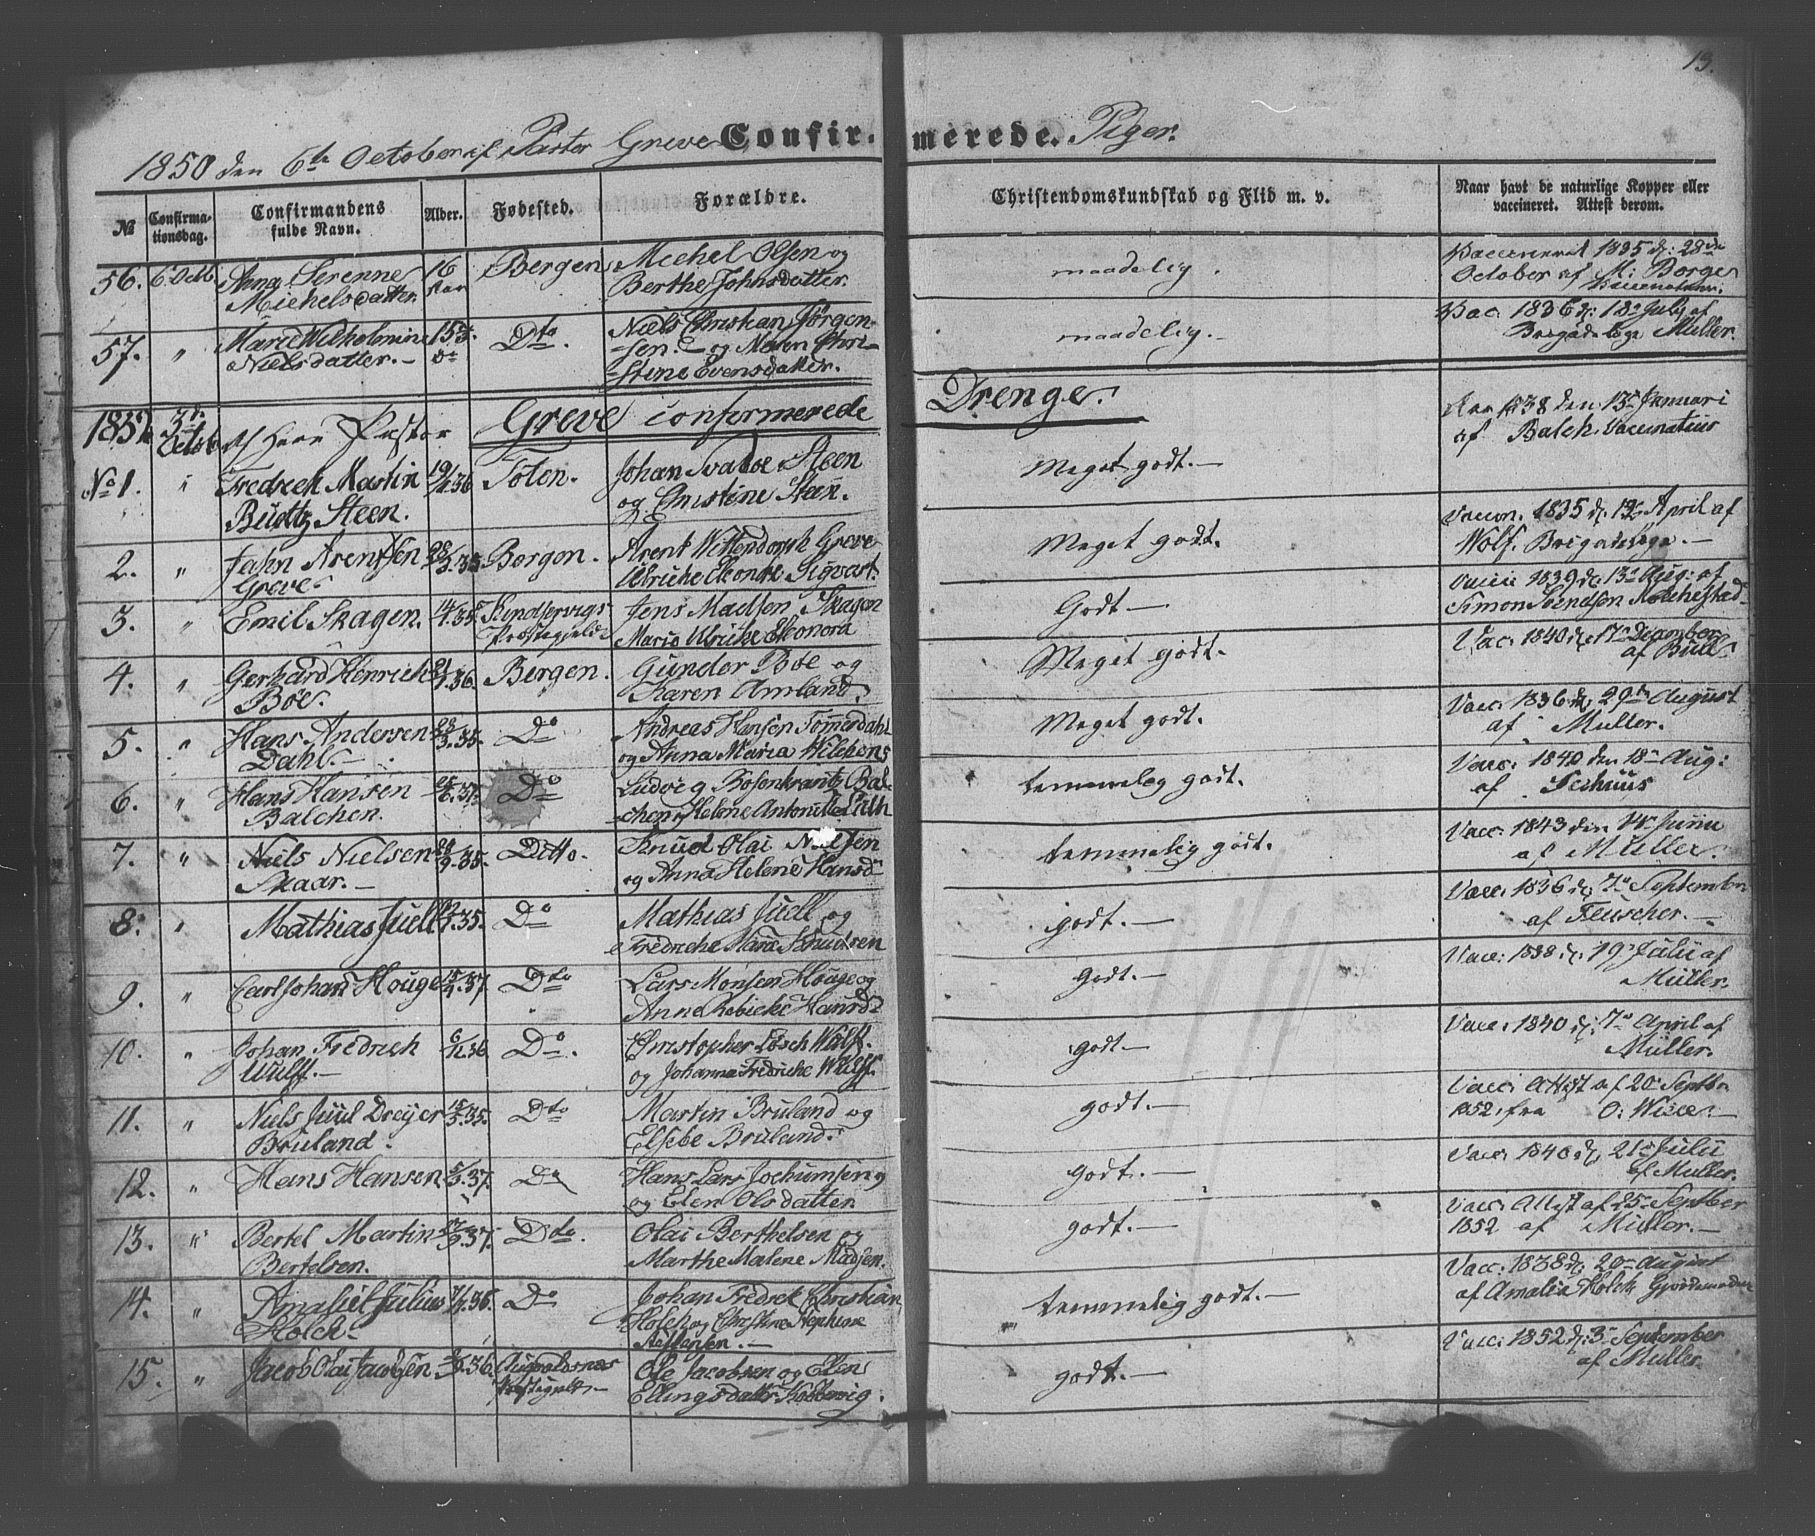 13.
1850 den 6te October af Pastor Greve Confirmerede. Piger.
№ Confirmationsdag. Confirmandens fulde Navn. Alder. Fødested. Forældre. Christendomskundskab og Flid m. v. Naar havt de naturlige Kopper eller vaccineret. Attest derom.
56. 6 Octb. Anna Serenne 16 Bergen Michel Olsen og maadelig. 1835 d: 28de
Michelsdatter Aar Berthe Johnsdatter. October af M: Borge
57. " Marie Wilhelmine 15¾ Dto. Niels Christian Jørgen- maadelig.- Vac: 1836 d: 18de July af
Nielsdatter.- -sen.- og Maren Chri- Brigadelæge Müller.
-stine Evensdatter.
1852 3de Octob. Af Herr Pastor Greve confirmerede Drenge.
No 1. " Fredrich Martin 19/ 36 Toten. Johan Svaboe Steen Meget godt.- 1838 den 13de Januari
Budtz Steen. og Christine Steen. af Balch. Vaccinatius
2. " Jahn Arentsen 28/3.35. Bergen. Arent Wittendorph Greve Meget godt. Vaccn. 1835 d: 19de April af
Greve Ulriche Leonore Sigvart. Wolf. Brigadelæge.-
3. " Emil Skagen. 14/ 35 Kindservigs Jens Madsen Skagen Godt- Vacci 1839 d: 13de Aug: af
Præstegjeld Maria Ulrike Eleonora Simon Svendsen
4. " Gerhard Henrich 21/ 36. Bergen. Gunder Bøe og Meget godt. Vac: 1840 d: 17de December
Bøe. Karen Amland. af Bull
5. " Hans Andersen 23/3.35. Do Andreas Hansen Tommerdahl Meget godt. Vacc: 1836 d: 29de August
Dahl.- og Anna Maria af Muller.
6. " Hans Hansen 25/6.37. Do Ludvig Rosenkrantz Bal- temmelig godt. Vacc: 1840 den 18de Aug:
Balchen. -chen og Helene Antonette Lüth af
7. " Niels Nielsen 28/9.35. Ditto. Knud Olai Nielsen temmelig godt. Vacc: 1843 den Juniu
Skaar.- og Anna Helene Hansd af Muller.
8. " Mathias Juell /7.35. Do Mathias Juell og godt.- Vacc: 1836 d: 7de September
Fredriche Maria Knudsen af Feuscher.-
9. " Carl Johan Houge 15/4.37. Dto Lars Monsen Houge og Godt.- Vacc: 1838 d: 19de Julii af
Anna Rebicke Hansd Müller.
10. " Johan Fredrich 6/12.36 Do. Christopher Lösch Wulff. godt- Vacc: 1840 d: 7de April af
Wulff.- og Johanna Fredriche Wulff. Müller.
11. " Niels Juul Dreyer 15/3.35. Dto Martin Bruland og godt.- Vacc: Attest af 20 Septbr
Bruland. Elsebe Bruland. 1852. fra O: Wiese.-
12. " Hans Hansen 5/3.37. Do Hans Lars Jochumsen godt.- Vacc: 1840 d: 21de Julii
og Elen Olsdatter af Müller.
13. " Bertel Martin 37. Dto. Olai Berthelsen og godt.- Vacc: Attest af 25de Septber
Bertelsen. Marthe Malene Madsen. 1852 af Müller.-
14. " Julius 36. Do Johan Fredrek Christian temmelig godt.- Vacc: 1838 d: 20de August
Holch- Holch og Christine Stephine af Amalia Holck Gjordemoder
15. " Jacob Olai Jacobsen 36. Augvaldsnæs Ole Jacobsen og Elen godt.- Vacc: 1852 d: 3de September
Præstegjeld- Ellingsdatter af Müller.